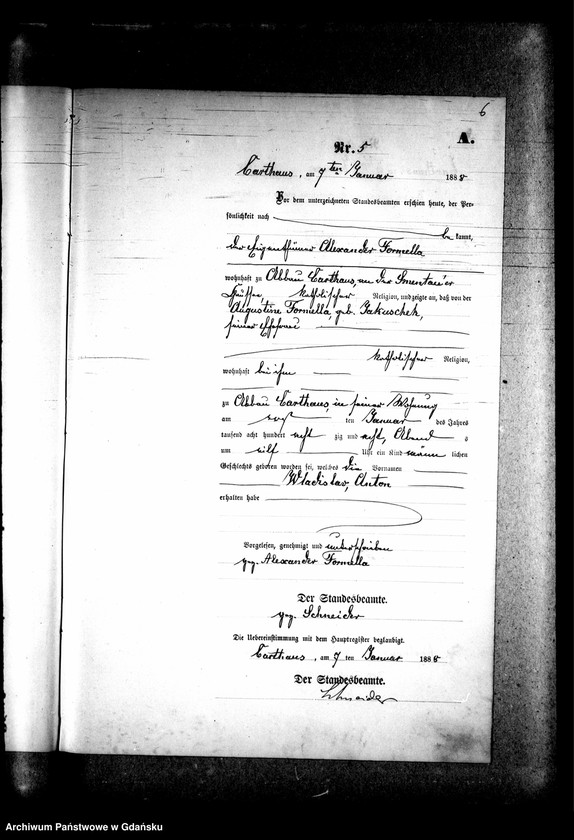 6
A.
Nr. 5
Carthaus, am 7ten Januar 1888
Vor dem unterzeichneten Standesbeamten erschien heute, der Per-
sönlichkeit nach
be kannt,
der Eigenthümer Alexander Formella
wohnhaft zu Abbau Carthaus, an der
katholischer Religion, und zeigte an, daß von der
Augustine Formella, geb. Jakuschek,
seiner Ehefrau
katholischer Religion,
wohnhaft bei ihm
zu Abbau Carthaus, in seiner Wohnung
am ten Januar des Jahres
tausend acht hundert acht zig und acht, Abend s
um elf Uhr ein Kind männ lichen
Geschlechts geboren worden sei, welches die Vornamen
Wladislav, Anton
erhalten habe
Vorgelesen, genehmigt und unterschrieben
gez. Alexander Formella
Der Standesbeamte.
gez. Schneider
Die Uebereinstimmung mit dem Hauptregister beglaubigt.
Carthaus, am 7 ten Januar 1888
Der Standesbeamte.
Schneider
Archiwum Państwowe w Gdańsku